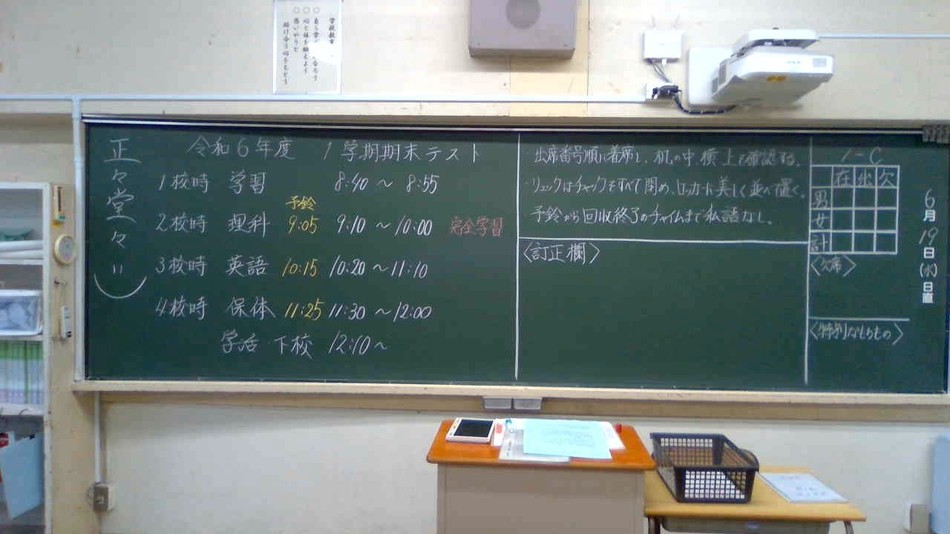 学校教育
正々堂々
令和6年度 1学期期末テスト
1校時 学習 8:40〜8:55
予鈴
2校時 理科 9:05 9:10〜10:00 完全学習
3校時 英語 10:15 10:20〜11:10
4校時 保体 11:25 11:30〜12:00
学活・下校 12:10〜
出席番号順に着席し、机の中、横、上を確認する。
・リュックはチャックをすべて閉め、ロッカーに美しく並べ置く。
予鈴から回収終了のチャイムまで私語なし。
〈訂正欄〉
1-C
在 出 欠
男
女
計
〈欠席〉
〈特別なもちもの〉
6月19日(水)日直